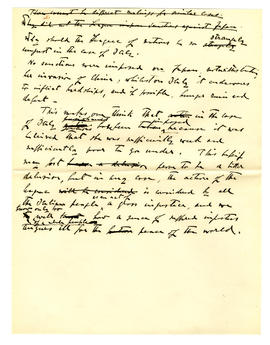 There must be different makings for similar cases
Why should the League of Nations be so strangely
unjust in the case of Italy.
No sanctions were imposed on Japan notwithstanding
her invasion of China, whilst on Italy it endeavours
to inflict hardships, and if possible, hunger, ruin and
defeat.
This makes one think that in the case
of Italy because it was
believed that she was sufficiently weak and
sufficiently poor to go under. This belief
may prove to be a
delusion, but in any case, the action of the
League is considered by all
the Italian people, a gross injustice, and we
know only too
well how a sense of suffered injustice
augurs ill for the future peace of the world.